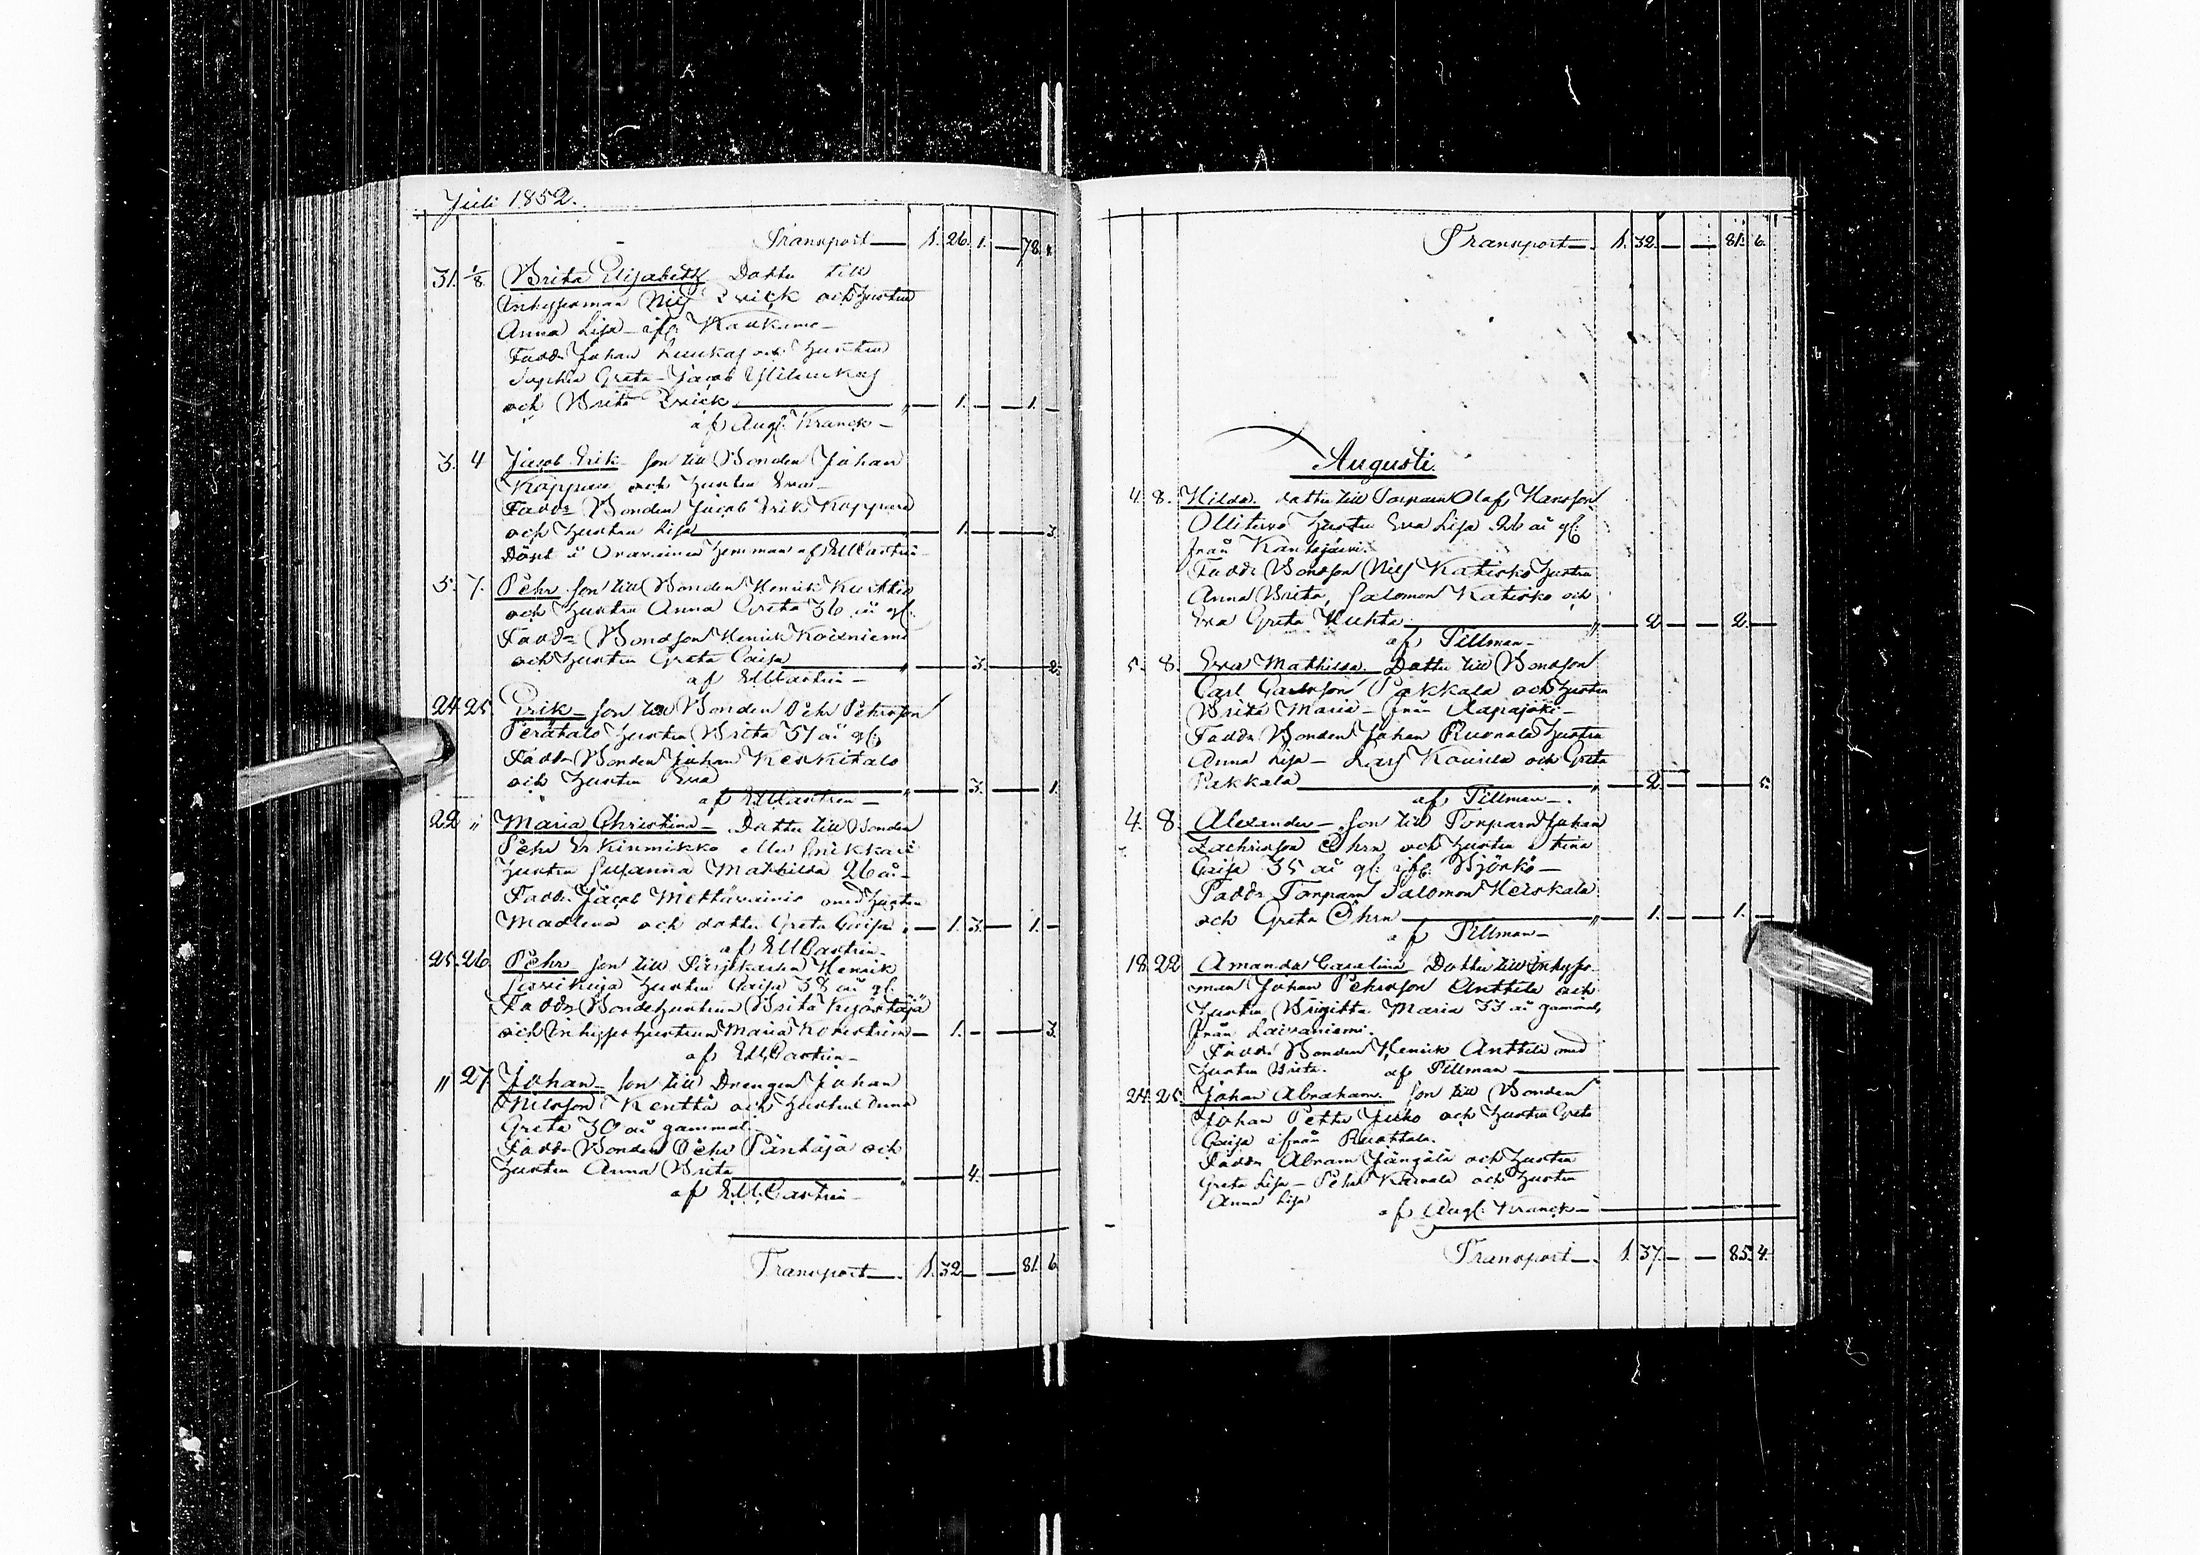 Juli 1852.
Transport — 1. 26. 1. — 78. 1.
31. 1/8. Brita Elisabeth Dotter till
Inhysesman Nils Brick och hustru
Anna Lisa ifr. Kaukamo —
Fadd. Johan Luukas och hustru
Sophia Greta — Jacob Yliluukas
och Brita Brick — 1. — — 1. —
af Aug. Kranck —
3. 4 Jacob Erik son till Bonden Johan
Koppare och hustru Eva —
Faddr Bonden Jacob Erik Koppare
och hustru Lisa — 1. — — 3.
Döpt i hemman af EMCastrén
5. 7. Pehr son till Bonden Henrik Kurttio
och hustru Anna Greta 36 år gl.
Faddr Bondson Henrik Koivuniemi
och hustru Greta Caisa — 3. — 2.
af EMCastrén —
24. 25. Erik — son till Bonden Pehr Pehrsson
Perätalo hustru Brita 31 år gl.
Faddr Bonden Johan Keskitalo
och hustru Eva — 3. — 1.
af EMCastrén —
22 " Maria Christina — Dotter till Bonden
Pehr Er Kinmikko eller Snikkari
hustru Susanna Mathilda 26 år —
Faddr Jacob Mettävainio med hustru
Madlena och dotter Greta Caisa — 1. 3. — 1. —
af EMCastrén —
25. 26. Pehr son till Henrik
hustru Caisa 38 år gl.
Faddr Bondehustrun Brita
och Inhyses hustrun Maria — 1. — — 3.
af EMCastrén —
" 27. Johan — son till Drengen Johan
Nilsson Kenttä och hustru Anna
Greta 30 år gammal —
Faddr Bonden Pehr Pänkäjä och
hustru Anna Brita — 4. —
af EMCastrén —
Transport — 1. 32 — — 81. 6.
Transport — 1. 32. — — 81. 6.
Augusti.
4. 8. Hilda dotter till Torparn Olof Hansson
Ollitervo hustru Eva Lisa 26 år gl.
från Kantojärvi.
Faddr Bondson Nils Katisko hustru
Anna Brita, Salomon Katisko och
Eva Greta Huhta — 2 — — 2. —
af Tillman —
5. 8. Eva Mathilda Dotter till Bondson
Carl Carlsson Pakkala och hustru
Brita Maria — från Aapajoki —
Faddr Bonden Johan Ruonala hustru
Anna Lisa — Lars Kourila och Greta
Pakkala — 2. — 5.
af Tillman —.
4. 8. Alexander — son till Torparn Johan
Zachrisson Öhrn och hustru Stina
Caisa 35 år gl. ifr. Björkö —
Faddr Torparn Salomon Heiskala
och Greta Öhrn — 1. — 1. —
af Tillman —
18. 22 Amanda Carolina Dotter till Inhyses
man Johan Pehrsson Anttila och
hustru Brigitta Maria 33 år gammal,
från Laivaniemi.
Faddr Bonden Henrik Anttila med
hustru Brita. af Tillman —
24. 25. Johan Abraham son till Bonden
Johan Petter Jusko och hustru Greta
Caisa ifrån Ruottala.
Faddr Abram Jängälä och hustru
Greta Lisa — Pehr Kaivala och hustru
Anna Lisa
af Aug. Kranck —
Transport — 1. 37. — — 85. 4.